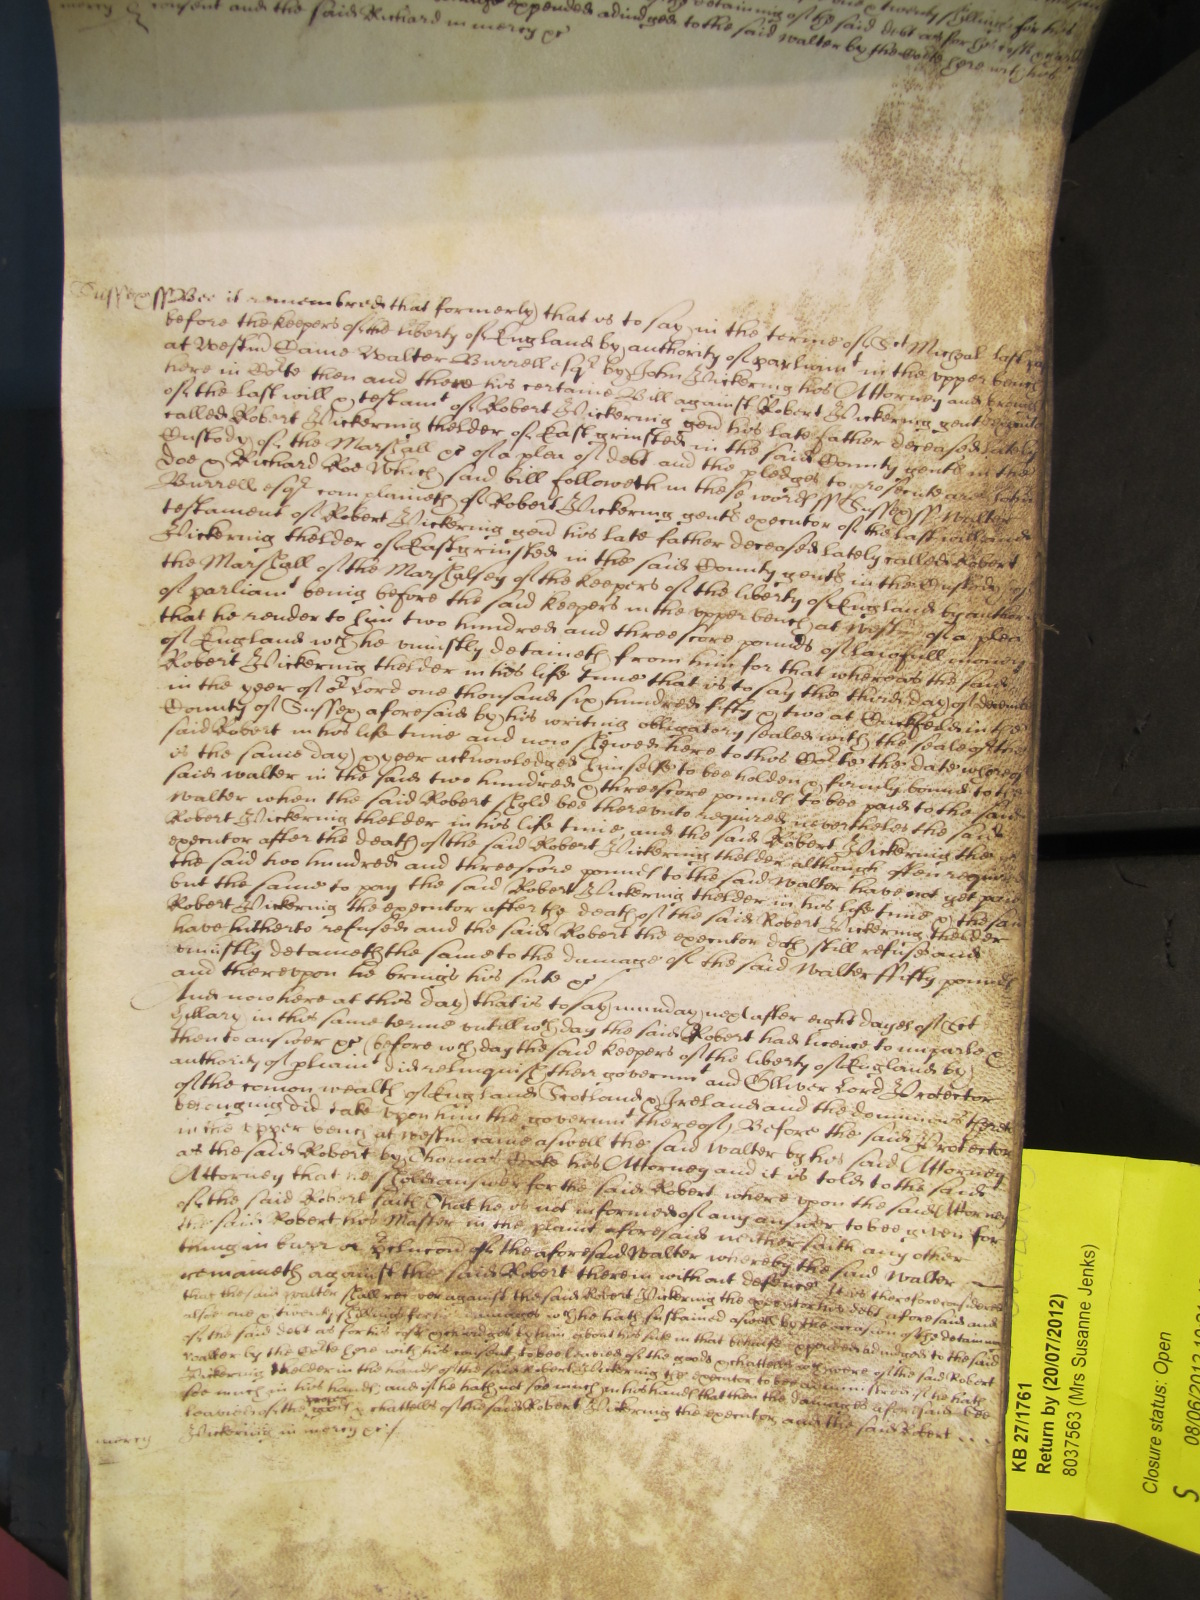 expended adiudged to the said Walter by the Co^rte here with his
consent and the said Richard in mercy &c
Sussex ss Bee it remembred that formerly that is to say in the terme of S^ct Michael last past
before the keepers of the liberty of England by authority of parliam^t in the upper bench
at Westm^r Came Walter Burrell esq^r by John Pickering his Attorney and brought
here in Co^rte then and there his certaine Bill against Robert Pickering gent executor
of the last will & testam^t of Robert Pickering gen^t his late father deceased lately
called Robert Pickering thelder of Eastgrinsted in the said County gent in the
Custody of the Marshall &c of a plea of debt and the pledges to prosecute are John
Doe & Richard Roe Which said bill followeth in these words ss Sussex ss Walter
Burrell esq^r complaineth of Robert Pickering gent executor of the last will and
testament of Robert Pickering gen^t his late father deceased lately called Robert
Pickering thelder of Eastgrinsted in the said County gent in the Custody of
the Marshall of the Marshalsey of the keepers of the liberty of England by author
of parliam^t being before the said keepers in the upper bench at Westm^r of a plea
that he render to him two hundred and threescore pounds of lawfull money
of England w^ch he uniustly detaineth from him for that whereas the said
Robert Pickering thelder in his life time that is to say the third day of
in the yeer of o^r Lord one thousand six hundred fifty & two at Cuckfeild in the
County of Sussex aforesaid by his writing obligatory sealed with the seale of the
said Robert in his life time and now shewed here to this Co^rte the date whereof
is the same day & yeer acknowledged himselfe to bee holden & firmly bound to the
said Walter in the said two hundred & threescore pounds to bee paid to the said
Walter when the said Robert should bee thereunto required neverthelesse the said
Robert Pickering thelder in his life time and the said Robert Pickering the
executor after the death of the said Robert Pickering thelder although often required
the said two hundred and threescore pounds to the said Walter have not yet paid
but the same to pay the said Robert Pickering thelder in his life time & the said
Robert Pickering the executor after the death of the said Robert Pickering thelder
have hitherto refused and the said Robert the executor doth still refuse and
uniustly detaineth the same to the damage of the said Walter fifty pounds
and thereupon he brings his suite &c
And now here at this day that is to say munday next after eight dayes of S^ct
Hillary in this same terme untill w^ch day the said Robert had licence to imparle &
then to answer &c before w^ch day the said keepers of the liberty of England by
authority of pliam^t did relinquish their governm^t and Olliver Lord Protector
of the comon wealth of England Scotland & Ireland and the dominions thereto
belonging did take upon him the governm^t thereof Before the said Protector
in the upper bench at Westm^r came aswell the said Walter by his said Attorney
as the said Robert by Thomas his Attorney and it is told to the said
Attorney that he should answer for the said Robert where upon the said Attorney
of the said Robert saith That he is not informed of any answer to bee given for
the said Robert his Master in the plaint aforesaid neither saith any other
thing in barr or of the aforesaid Walter whereby the said Walter
remaineth against the said Robert therein without defence It is therefore considered
that the said Walter shall recover against the said Robert Pickering the executor his debt aforesaid and
alsoe one & twenty shillings for his damages w^ch he hath sustained aswell by the occasion of the detaining
of the said debt as for his costs & charges by him about his suit in that behalfe expended adiudged to the said
Walter by the Co^rte here with his consent to bee levied of the goods & chattells w^ch were of the said Robert
Pickering thelder in the hands of the said Robert Pickering the executor to bee administred if he hath
soe much in his hands and if he hath not soe much in his hands that then the damages aforesaid bee
levied of the proper goods & chattells of the said Robert Pickering the executor and the said Robert
mercy Pickering in mercy &c
KB 27/1761
Return by (20/07/2012)
8037563 (Mrs Susanne Jenks)
Closure status: Open
S